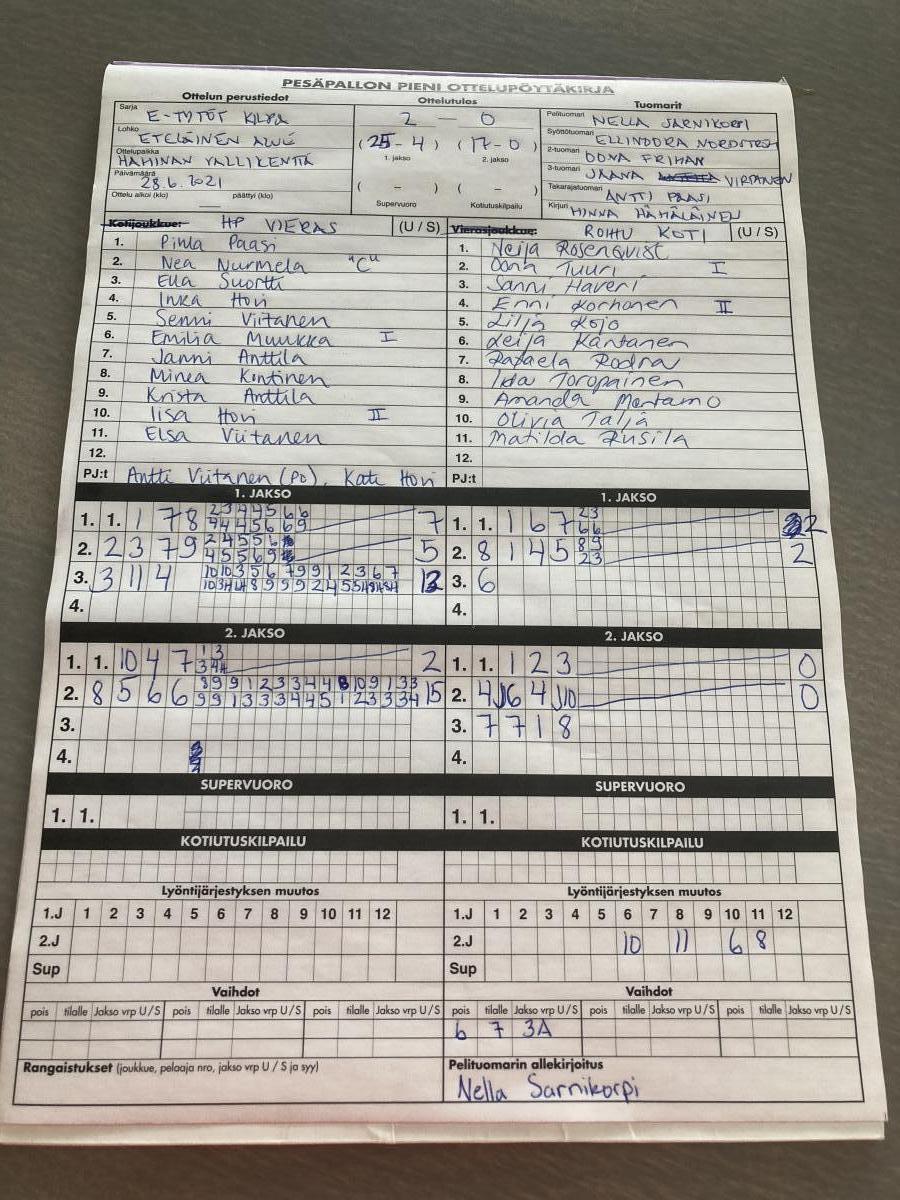 PESÄPALLON PIENI OTTELUPÖYTÄKIRJA
Ottelun perustiedot
Ottelutulos
Tuomarit
Sarja E-TYTÖT KILPA
Lohko ETELÄINEN ALUE
Ottelupaikka HAMINAN VALLIKENTTÄ
Päivämäärä 28.6.2021
Ottelu alkoi (klo) — päättyi (klo)
2 — 0
(25 - 4) (17 - 0)
1. jakso 2. jakso
( - ) ( - )
Supervuoro Kotiutuskilpailu
Pelituomari NELLA SARNIKORPI
Syöttötuomari ELLINOORA
2-tuomari OONA FRIMAN
3-tuomari JAANA VIRTANEN
Takarajatuomari ANTTI PAASI
Kirjuri MINNA HÄMÄLÄINEN
Kotijoukkue: HP VIERAS (U / S)
1. Pinla Paasi
2. Nea Nurmela "C"
3. Ella Suortti
4. Inka Hovi
5. Senni Viitanen
6. Emilia Muukka I
7. Janni Anttila
8. Minea Kontinen
9. Krista Anttila
10. Iisa Hovi II
11. Elsa Viitanen
12.
PJ:t Antti Viitanen (PJ), Kati Hovi
Vierasjoukkue: ROIHU KOTI (U / S)
1. Neija Rosenqvist
2. Oona Tuuri I
3. Sanni Haveri
4. Enni Korhonen II
5. Lilja Kojo
6. Keija Kantanen
7. Rafaela Rodra
8. Iida Toropainen
9. Amanda Mantamo
10. Olivia Talja
11. Matilda Rusila
12.
PJ:t
1. JAKSO
1. 1. 1 7 8 2 3 4 4 5 6 6
4 4 4 5 6 6 9 7
2. 2 3 7 9 2 4 5 5 6
4 5 5 6 9 5
3. 3 11 4 10 10 3 5 6 7 9 9 1 2 3 6 7
13
4.
1. JAKSO
1. 1. 1 6 7 2 3
6 6 2
2. 8 1 4 5 8 9
2 3 2
3. 6
4.
2. JAKSO
1. 1. 10 4 7 1 3
3 4 2
2. 8 5 6 6 8 9 9 1 2 3 3 4 4 8 10 9 1 3 3
9 9 1 3 3 3 4 4 5 1 2 3 3 3 4 15
3.
4.
2. JAKSO
1. 1. 1 2 3 0
2. 4 J6 4 J10 0
3. 7 7 1 8
4.
SUPERVUORO
1. 1.
SUPERVUORO
1. 1.
KOTIUTUSKILPAILU
KOTIUTUSKILPAILU
Lyöntijärjestyksen muutos
1.J 1 2 3 4 5 6 7 8 9 10 11 12
2.J
Sup
Lyöntijärjestyksen muutos
1.J 1 2 3 4 5 6 7 8 9 10 11 12
2.J 10 11 6 8
Sup
Vaihdot
pois tilalle Jakso vrp U / S pois tilalle Jakso vrp U / S pois tilalle Jakso vrp U / S
Vaihdot
pois tilalle Jakso vrp U / S pois tilalle Jakso vrp U / S pois tilalle Jakso vrp U / S
6 7 3A
Rangaistukset (joukkue, pelaaja nro, jakso vrp U / S ja syy)
Pelituomarin allekirjoitus
Nella Sarnikorpi